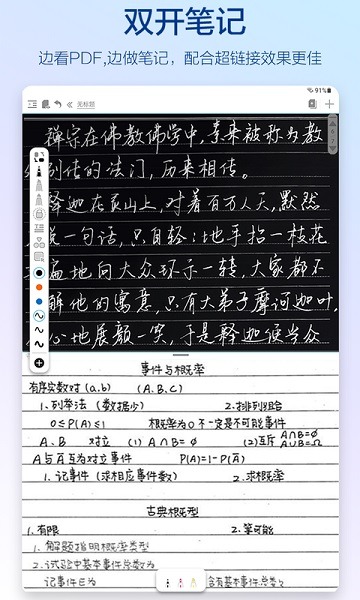 双开笔记
边看PDF,边做笔记，配合超链接效果更佳
91%
无标题
禅宗在佛教佛学中,素来被称为教
别传的法门,历来相传。
释迦在灵山上,对着百万人天,默然
说一句话,只自轻轻地手拈一枝花
遍地向大众环示一转,大家都不
解他的寓意,只有大弟子摩诃迦叶,
心地展颜一笑,于是释迦便当众
事件与概率
有序实数对 (a,b) (A,B,C)
1.列举法 (数据少) 2.排列组合
0≤P(A)≤1 概率为0不一定是不可能事件
A、B 对立 (1) A∩B=∅ (2)互斥 A∩B=∅ A∪B=Ω
A与A̅互为对立事件 P(A)=1-P(A̅)
1.记事件(求相应事件数) 2.求概率
古典概型
1.有限 2.等可能
1.解题指明概率类型
2.试验中基本事件总数为
记事件E为 含有基本事件总数